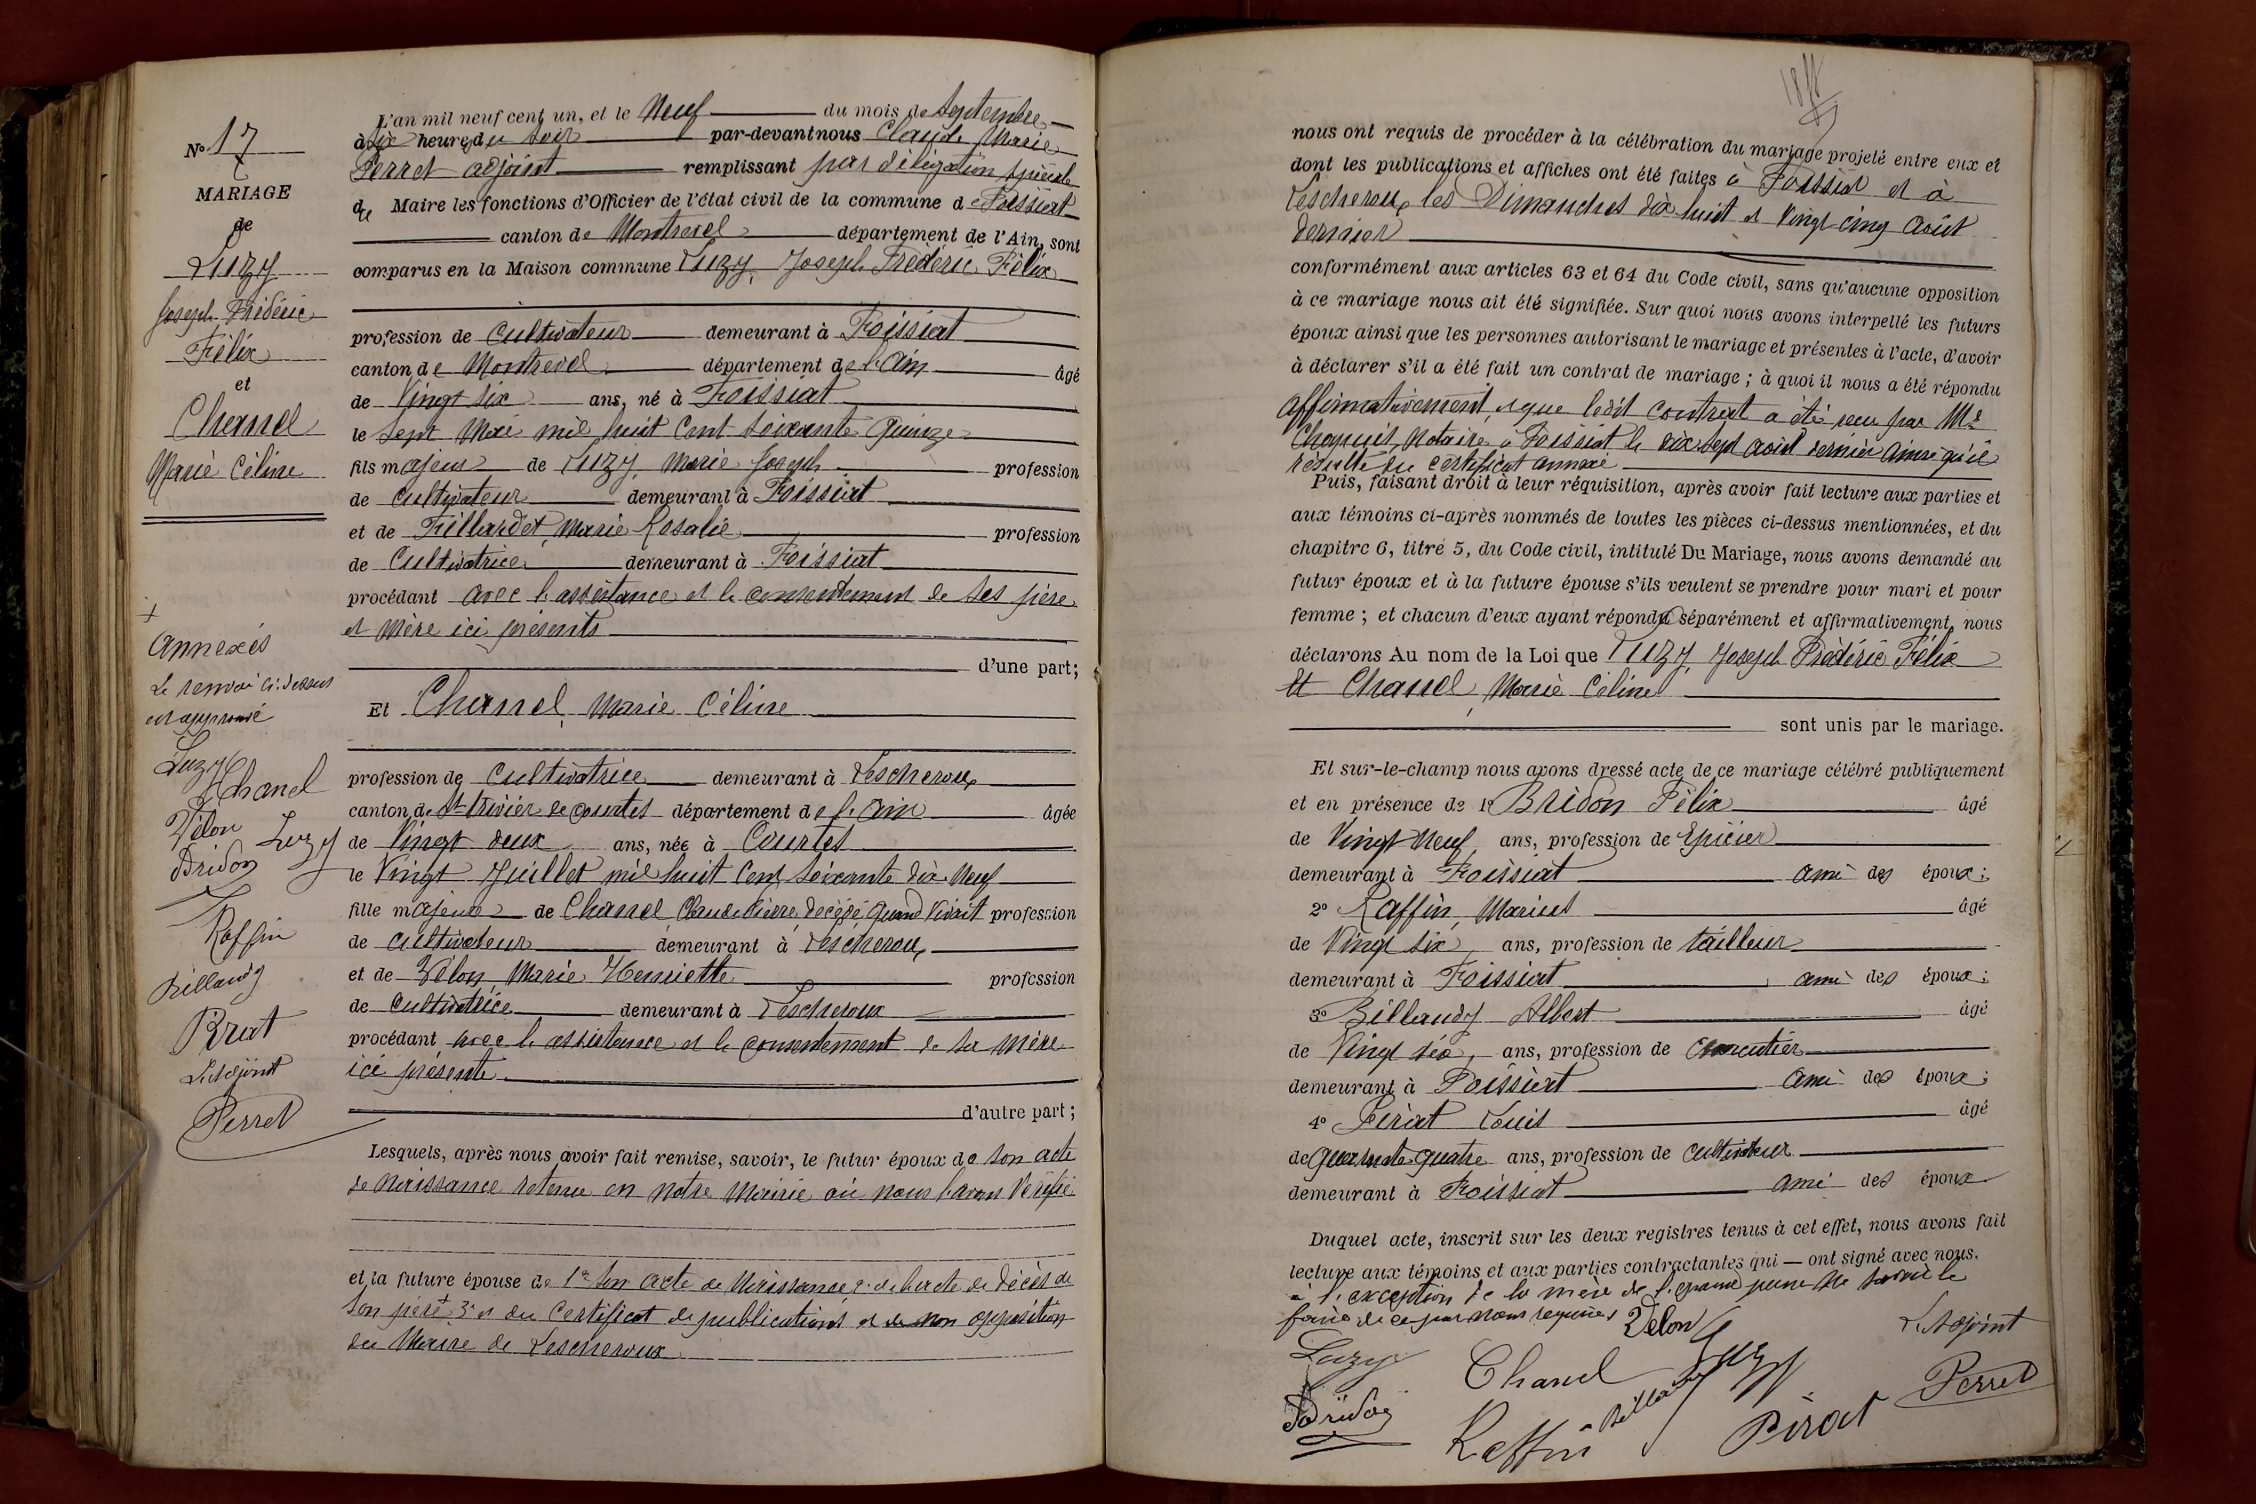 N° 17
MARIAGE
de
Luzy
Joseph Frédéric
Félix
et
Chanel
Marie Céline
+
annexés
Le renvoi ci-dessus
est approuvé
Luzy
Chanel
Vélon Luzy
Bridon
Raffin
Billaudy
Pirat
L'adjoint
Perret
L'an mil neuf cent un, et le Neuf du mois de Septembre
à six heures du soir par-devant nous Claude Marie
Perret adjoint remplissant par délégation spéciale
de Maire les fonctions d'Officier de l'état civil de la commune de Foissiat
canton de Montrevel département de l'Ain, sont
comparus en la Maison commune Luzy, Joseph Frédéric Félix
profession de cultivateur demeurant à Foissiat
canton de Montrevel département de l'Ain âgé
de Vingt six ans, né à Foissiat
le sept Mai mil huit cent soixante quinze
fils majeur de Luzy Marie Joseph profession
de cultivateur demeurant à Foissiat
et de Fillardet, Marie Rosalie profession
de Cultivatrice demeurant à Foissiat
procédant avec l'assistance et le consentement de ses père
et mère ici présents
d'une part;
Et Chanel, Marie Céline
profession de cultivatrice demeurant à Lescheroux
canton de St Trivier de Courtes département de l'Ain âgée
de Vingt deux ans, née à Courtes
le Vingt Juillet mil huit cent soixante dix-neuf
fille majeure de Chanel Claude Pierre, décédé, quand vivait profession
de cultivateur demeurant à Lescheroux
et de Vélon Marie Henriette profession
de cultivatrice demeurant à Lescheroux
procédant avec l'assistance et le consentement de sa mère
ici présente
d'autre part;
Lesquels, après nous avoir fait remise, savoir, le futur époux de son acte
de naissance retenu en notre Mairie où nous l'avons vérifié
et la future épouse de 1° son acte de naissance 2° de l'acte de décès de
son père + 3° et du certificat de publications et de non opposition
du Maire de Lescheroux
nous ont requis de procéder à la célébration du mariage projeté entre eux et
dont les publications et affiches ont été faites à Foissiat et à
Lescheroux, les Dimanches dix huit et Vingt cinq août
dernier
conformément aux articles 63 et 64 du Code civil, sans qu'aucune opposition
à ce mariage nous ait été signifiée. Sur quoi nous avons interpellé les futurs
époux ainsi que les personnes autorisant le mariage et présentes à l'acte, d'avoir
à déclarer s'il a été fait un contrat de mariage; à quoi il nous a été répondu
affirmativement, et que ledit contrat a été reçu par Me
Chapuis, Notaire à Foissiat le dix sept août dernier ainsi qu'il
résulte du certificat annexé
Puis, faisant droit à leur réquisition, après avoir fait lecture aux parties et
aux témoins ci-après nommés de toutes les pièces ci-dessus mentionnées, et du
chapitre 6, titre 5, du Code civil, intitulé Du Mariage, nous avons demandé au
futur époux et à la future épouse s'ils veulent se prendre pour mari et pour
femme; et chacun d'eux ayant répondu séparément et affirmativement, nous
déclarons Au nom de la Loi que Luzy, Joseph Frédéric Félix
Et Chanel, Marie Céline
sont unis par le mariage.
Et sur-le-champ nous avons dressé acte de ce mariage célébré publiquement
et en présence de 1° Bridon Félix âgé
de Vingt Neuf ans, profession de Epicier
demeurant à Foissiat ami des époux;
2° Raffin, Marius âgé
de Vingt six ans, profession de tailleur
demeurant à Foissiat ami des époux;
3° Billaudy Albert âgé
de Vingt six, ans, profession de charcutier
demeurant à Foissiat ami des époux;
4° Pirat Louis âgé
de quarante quatre ans, profession de cultivateur
demeurant à Foissiat ami des époux
Duquel acte, inscrit sur les deux registres tenus à cet effet, nous avons fait
lecture aux témoins et aux parties contractantes qui — ont signé avec nous.
à l'exception de la mère de l'époux pour ne savoir le
faire de ce par nous requises Vélon
Luzy Chanel Luzy L'Adjoint
Bridon Raffin Billaudy Pirat Perret